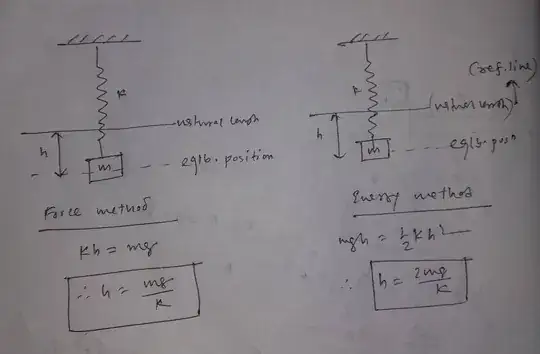 K
natural length
h
m
eqlb. position
Force method
Kh = mg
∴ h = mg/K
(ref. line)
K
(natural length)
h
m
eqlb. posn
Energy method
mgh = 1/2 Kh²
∴ h = 2mg/K